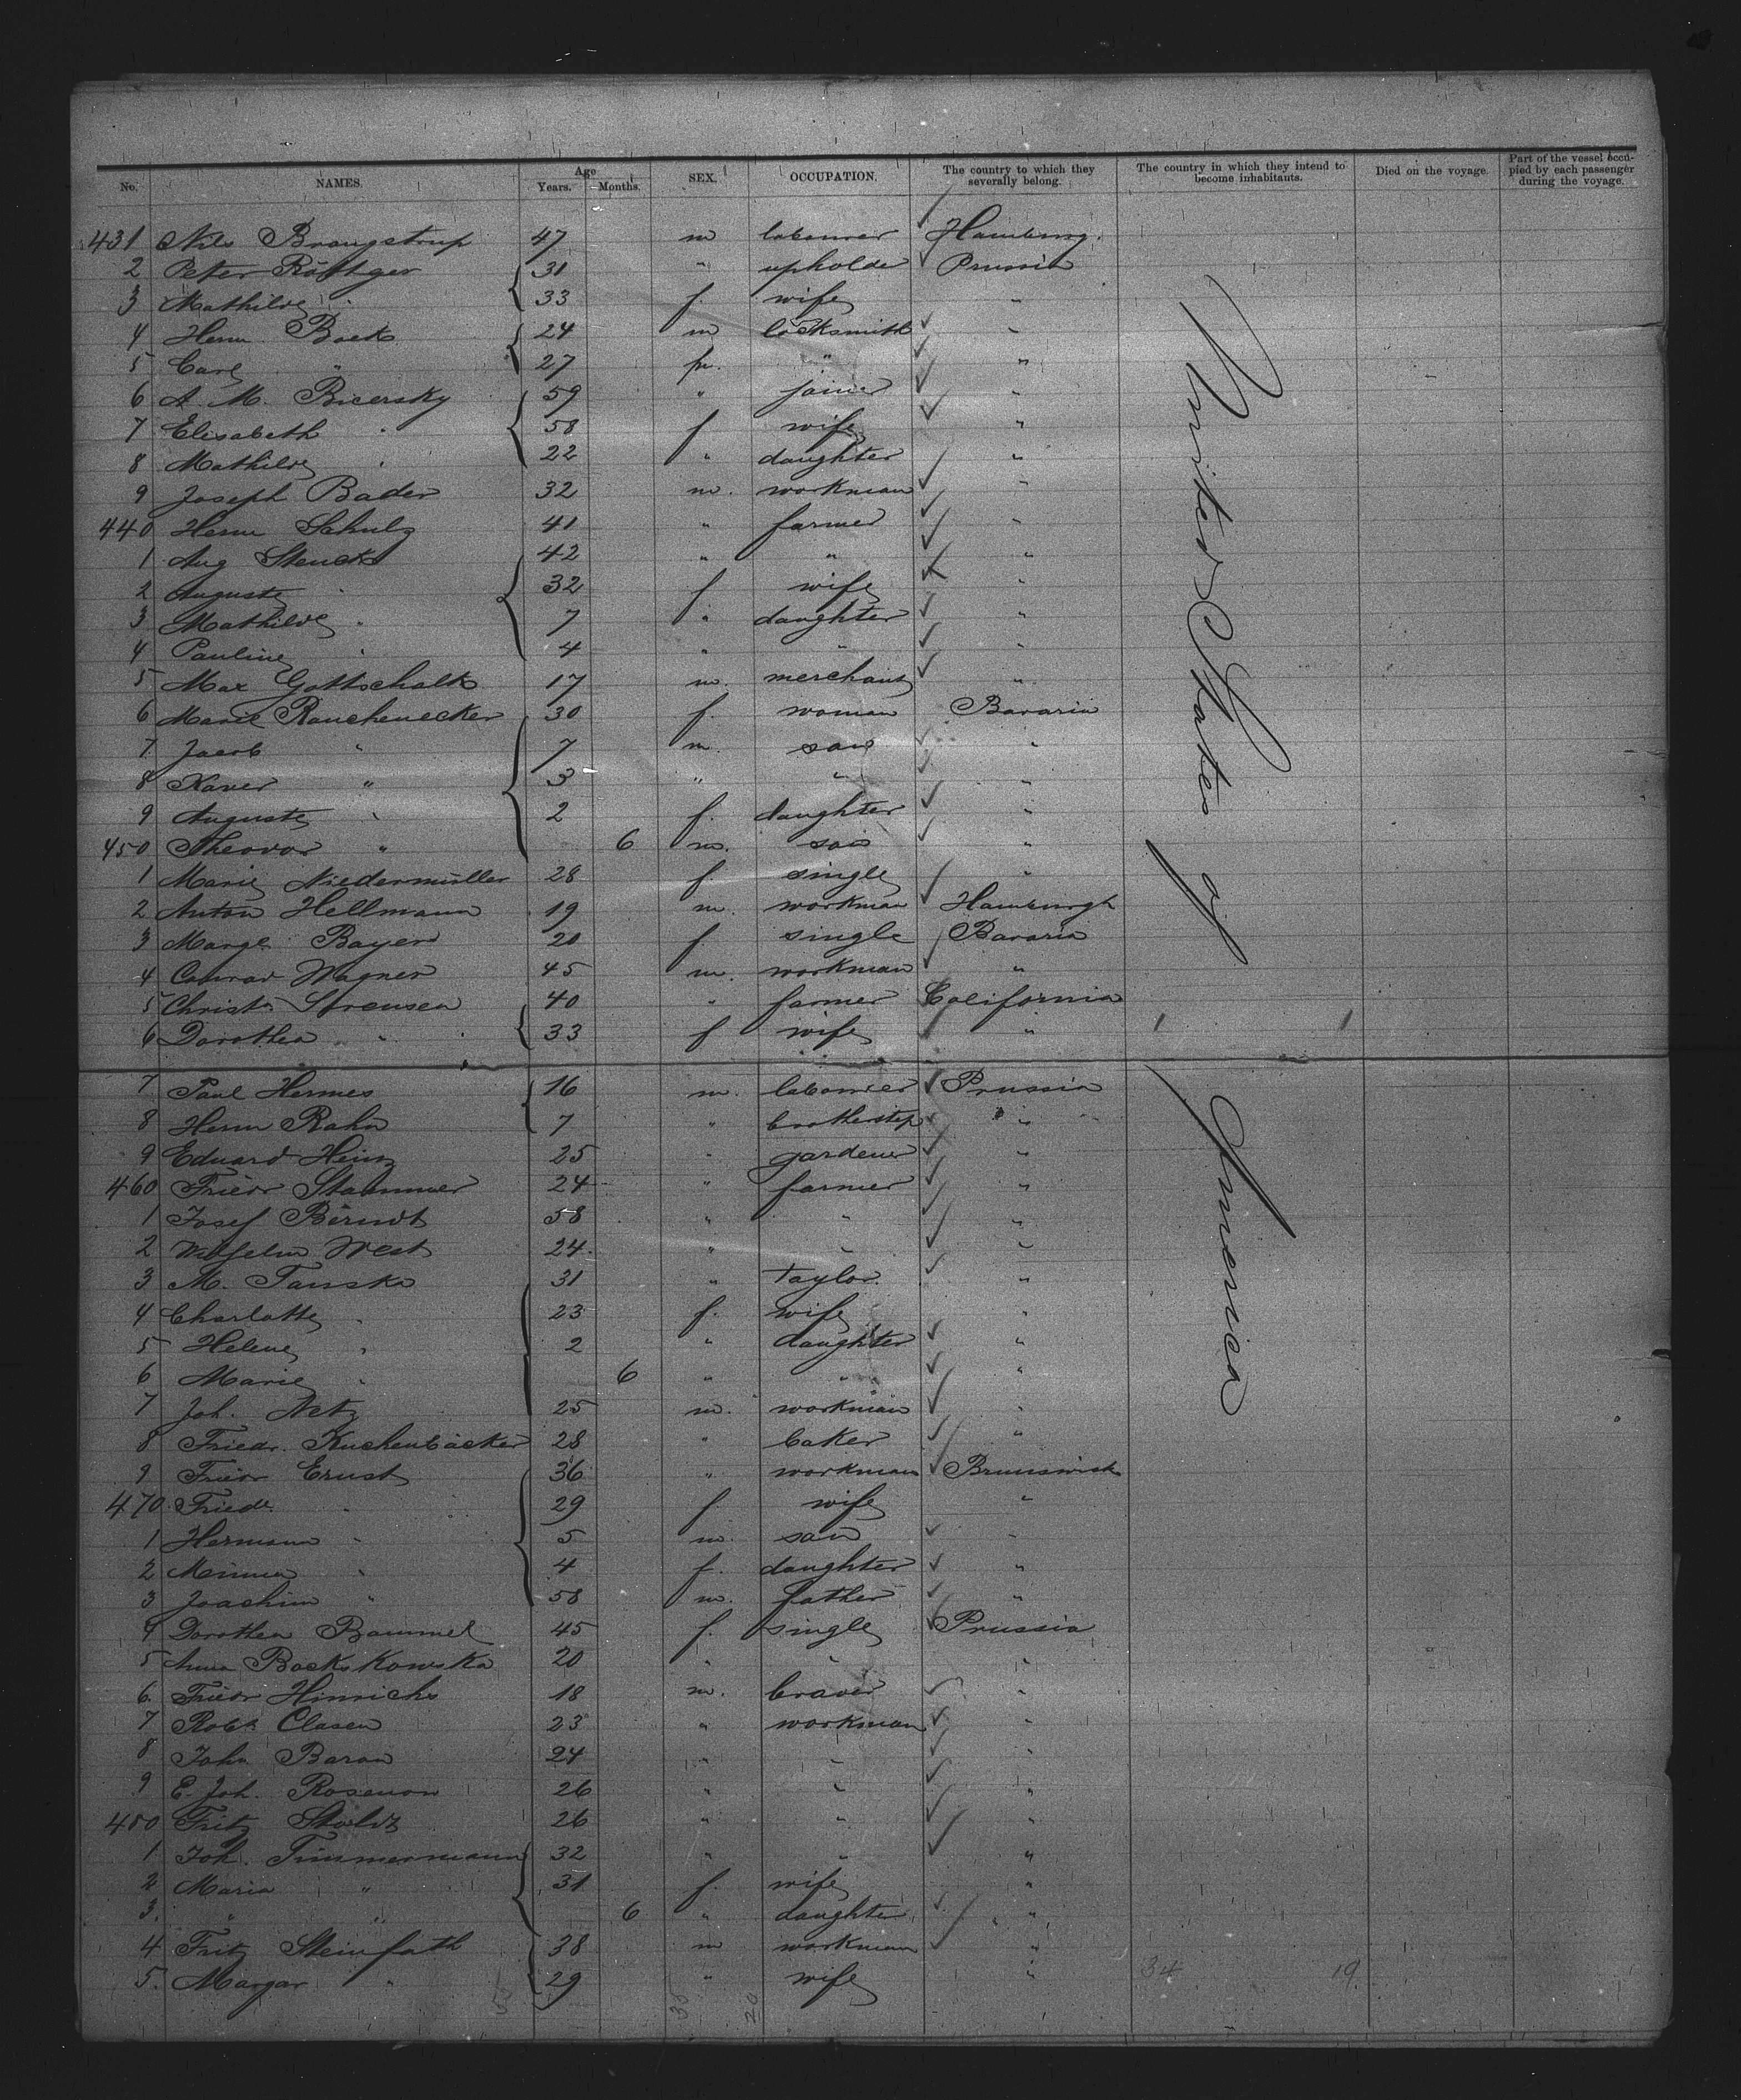 No. NAMES. Age Years. Months. SEX. OCCUPATION. The country to which they severally belong. The country in which they intend to become inhabitants. Died on the voyage. Part of the vessel occupied by each passenger during the voyage.
431 Nils Brangstrup 47 m labourer Hamburg.
2 Peter Röttger 31 " upholder Prussia
3 Mathilde " 33 f. wife "
4 Herm Boek 24 m locksmith "
5 Carl " 27 m. " "
6 A. M. Bicersky 59 " joiner "
7 Elisabeth " 58 f wife "
8 Mathilde " 22 " daughter "
9 Joseph Bader 32 m. workman "
440 Herm Schulz 41 " farmer "
1 Aug Stenck 42 " " "
2 Auguste " 32 f wife "
3 Mathilde " 7 " daughter "
4 Pauline " 4 " " "
5 Max Gottschalk 17 m. merchant "
6 Marie Rauchenecker 30 f. woman Bavaria
7 Jacob " 7 m. son "
8 Xaver " 3 " " "
9 Auguste " 2 f. daughter "
450 Theodor " 6 m. son "
1 Marie Niedermüller 28 f single "
2 Anton Hellmann 19 m. workman Hamburgh
3 Margt. Bayer 20 f single Bavaria
4 Conrad Wagner 45 m. workman "
5 Christn Sorensen 40 " farmer California
6 Dorothea " 33 f wife "
7 Paul Hermes 16 m. labourer Prussia
8 Herm Rahn 7 " brotherstep "
9 Eduard Heinz 25 " gardener "
460 Friedr Stammer 24 " farmer "
1 Josef Berndt 58 " " "
2 Wilhelm West 24 " " "
3 M. Tanska 31 " Taylor "
4 Charlotte " 23 f. wife "
5 Helene " 2 " daughter "
6 Marie " 6 " " "
7 Joh. Netz 25 m. workman "
8 Friedr. Kuchenbäcker 28 " baker "
9 Friedr Ernst 36 " workman Brunswick
470 Friede. " 29 f. wife "
1 Hermann " 5 m. son "
2 Minna " 4 f. daughter "
3 Joachim " 58 m. father "
4 Dorothea Bammel 45 f. single Prussia
5 Anna Bockskowska 20 " " "
6. Friedr Hinrichs 18 m. braver "
7 Robt. Clasen 23 " workman "
8 John Baran 24 " " "
9 E. Joh. Rosenow 26 " " "
480 Fritz 26 " " "
1 Joh. Timmermann 32 " " "
2 Maria " 31 f. wife "
3. " " 6 " daughter "
4 Fritz Steinfath 38 m workman "
5. Margar " 29 " wife "
United States of America
34 19
55 35 20